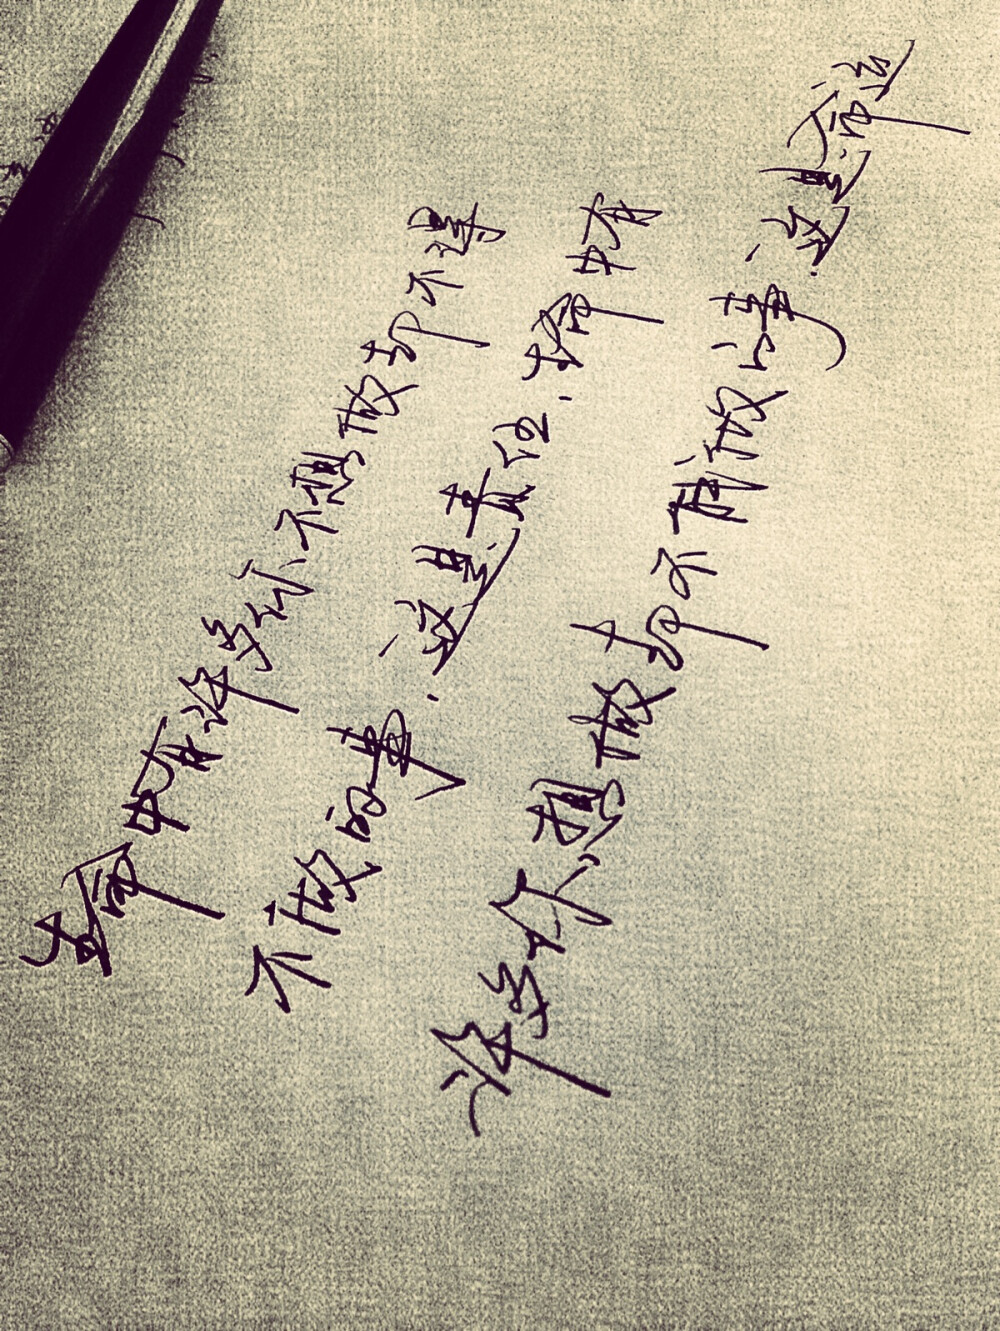 生命中有许多你不想做却不得
不做的事.这是责任.生命中有
许多你想做却不能做的事.这是命运